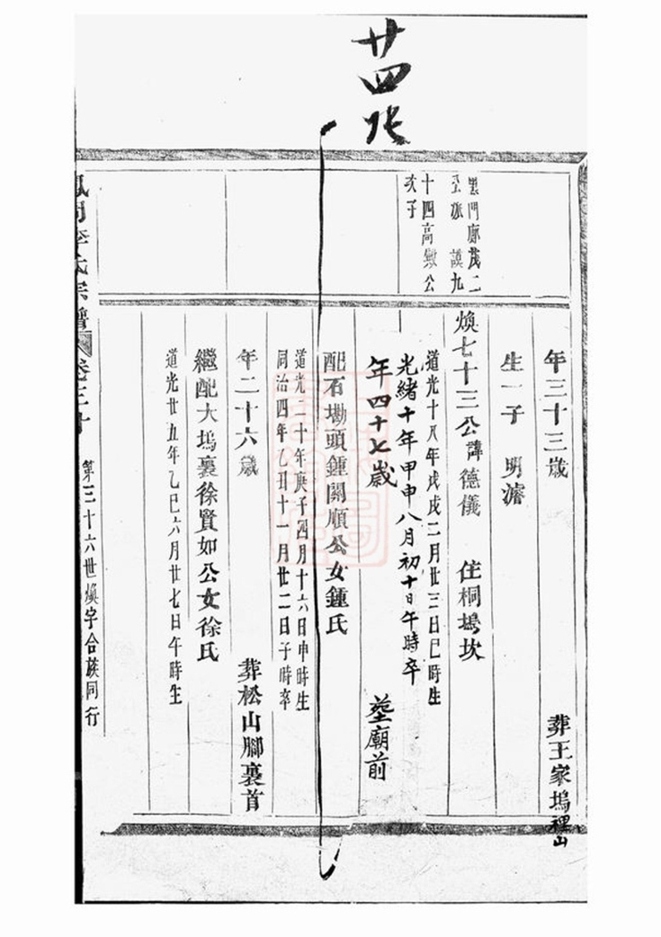 廿四張
里門廉茂二
公派謨九
十四高緻公
次子
年三十三歲 葬王家塢裡山
生一子 明濬
煥七十三公諱德儀 住桐塢坎
道光十八年戊戌二月廿三日巳時生
光緒十年甲申八月初十日午時卒
年四十七歲 塟廟前
配石塘頭鍾開順公女鍾氏
道光二十年庚子四月十六日申時生
同治四年乙丑十一月廿二日子時卒
年二十六歲 葬松山腳裏首
繼配大塢裏徐賢如公女徐氏
道光廿五年乙巳六月廿七日午時生
李氏宗譜 卷三十 第三十六世煥字合族同行